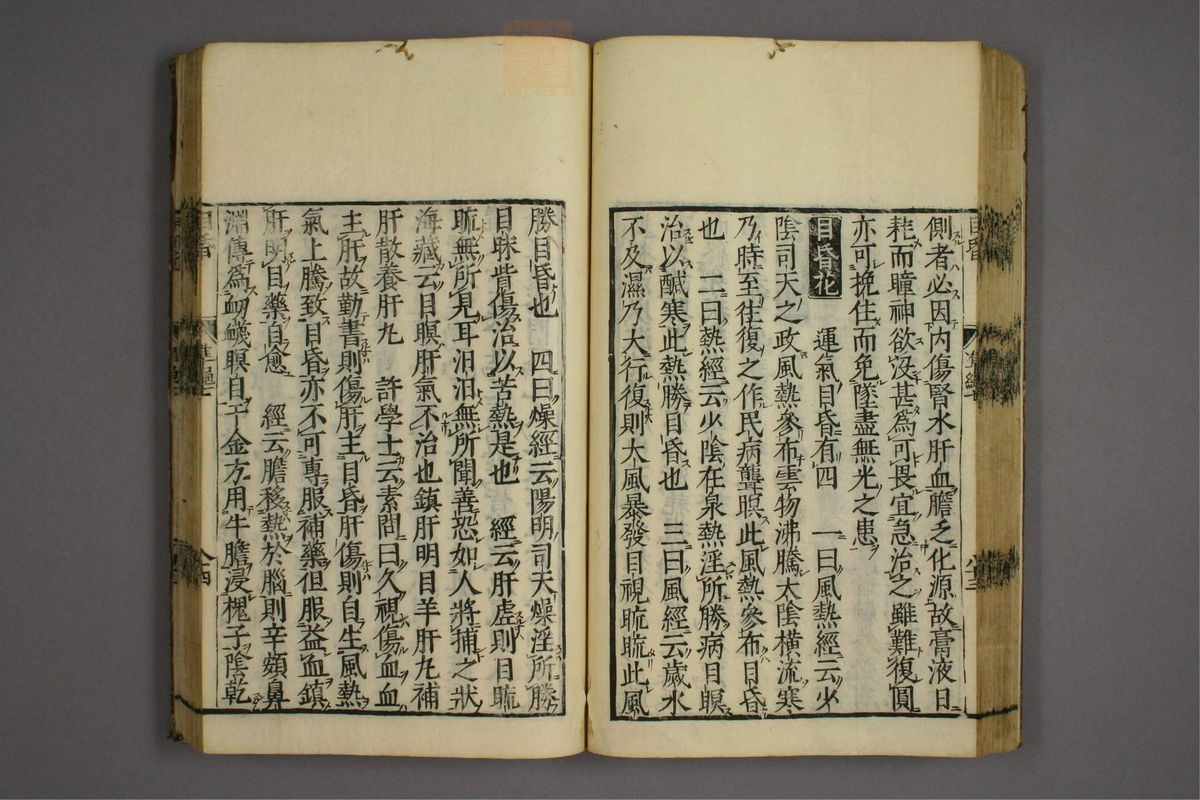 側者必因內傷腎水肝血膽乏化源故膏液日
耗而瞳神欲沒甚爲可畏宜急治之雖難復圓
亦可挽住而免墜盡無光之患
目昏花　運氣目昏有四　一曰風熱經云少
陰司天之政風熱參布雲物沸騰太陰橫流寒
乃時至往復之作民病聾瞑此風熱參布目昏
也　二曰熱經云少陰在泉熱淫所勝病目瞑
治以鹹寒此熱勝目昏也　三曰風經云歲水
不及濕乃大行復則大風暴發目視䀮䀮此風
勝目昏也　四曰燥經云陽明司天燥淫所勝
目昧眥傷治以苦熱是也　經云肝虛則目䀮
䀮無所見耳汨汨無所聞善恐如人將捕之狀
海藏云目瞑肝氣不治也鎮肝明目羊肝丸補
肝散養肝丸　許學士云素問曰久視傷血血
主肝故勤書則傷肝主目昏肝傷則自生風熱
氣上騰致目昏亦不可專服補藥但服益血鎮
肝明目藥自愈　經云膽移熱於腦則辛頞鼻
淵傳爲衄衊瞑目千金方用牛膽浸槐子陰乾
目昏
八十四